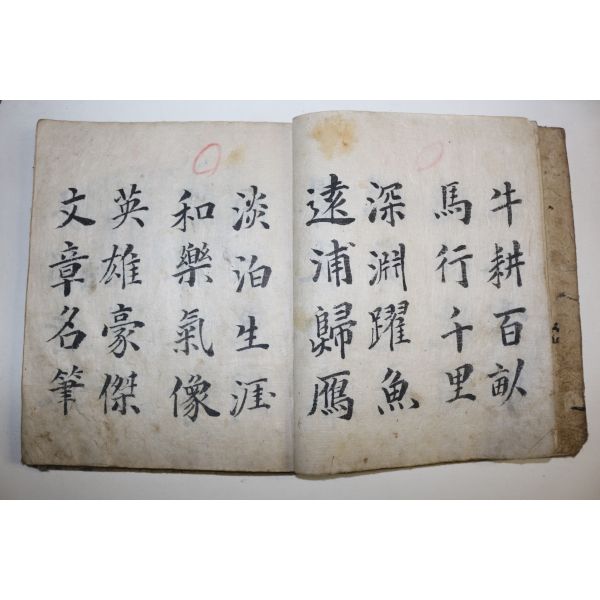 牛耕百畝
馬行千里
深淵躍魚
遠浦歸鴈
淡泊生涯
和樂氣像
英雄豪傑
文章名筆